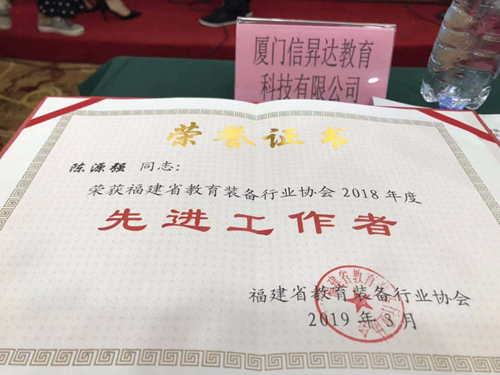 厦门信昇达教育
科技有限公司
荣誉证书
陈源强 同志:
荣获福建省教育装备行业协会 2018 年度
先进工作者
福建省教育装备行业协会
2019 年 3 月